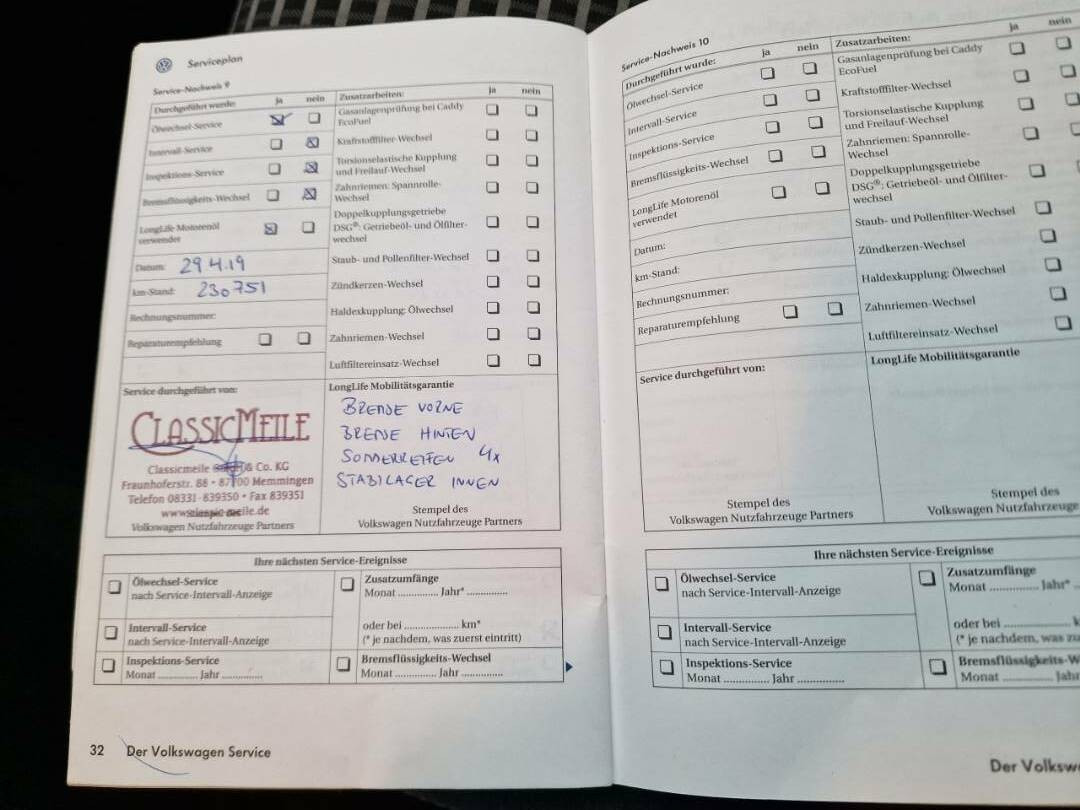 Serviceplan
Service-Nachweis 9
Durchgeführt wurde: ja nein
Ölwechsel-Service
Intervall-Service
Inspektions-Service
Bremsflüssigkeits-Wechsel
LongLife Motorenöl
verwendet
Datum: 29.4.19
km-Stand: 230751
Rechnungsnummer:
Reparaturempfehlung
Zusatzarbeiten: ja nein
Gasanlagenprüfung bei Caddy
EcoFuel
Kraftstofffilter-Wechsel
Torsionselastische Kupplung
und Freilauf-Wechsel
Zahnriemen: Spannrolle-
Wechsel
Doppelkupplungsgetriebe
DSG®: Getriebeöl- und Ölfilter-
wechsel
Staub- und Pollenfilter-Wechsel
Zündkerzen-Wechsel
Haldexkupplung: Ölwechsel
Zahnriemen-Wechsel
Luftfiltereinsatz-Wechsel
Service durchgeführt von:
CLASSICMEILE
Classicmeile & Co. KG
Fraunhoferstr. 88 • 87700 Memmingen
Telefon 08331-839350 • Fax 839351
Volkswagen Nutzfahrzeuge Partners
LongLife Mobilitätsgarantie
BREMSE VORNE
BREMSE HINTEN
SOMMERREIFEN 4x
STABILAGER INNEN
Stempel des
Volkswagen Nutzfahrzeuge Partners
Ihre nächsten Service-Ereignisse
Ölwechsel-Service
nach Service-Intervall-Anzeige
Intervall-Service
nach Service-Intervall-Anzeige
Inspektions-Service
Monat ............ Jahr ............
Zusatzumfänge
Monat ............ Jahr* ............
oder bei ................ km*
(* je nachdem, was zuerst eintritt)
Bremsflüssigkeits-Wechsel
Monat ............ Jahr ............
32 Der Volkswagen Service
Service-Nachweis 10
Durchgeführt wurde: ja nein
Ölwechsel-Service
Intervall-Service
Inspektions-Service
Bremsflüssigkeits-Wechsel
LongLife Motorenöl
verwendet
Datum:
km-Stand:
Rechnungsnummer:
Reparaturempfehlung
Zusatzarbeiten: ja nein
Gasanlagenprüfung bei Caddy
EcoFuel
Kraftstofffilter-Wechsel
Torsionselastische Kupplung
und Freilauf-Wechsel
Zahnriemen: Spannrolle-
Wechsel
Doppelkupplungsgetriebe
DSG®: Getriebeöl- und Ölfilter-
wechsel
Staub- und Pollenfilter-Wechsel
Zündkerzen-Wechsel
Haldexkupplung: Ölwechsel
Zahnriemen-Wechsel
Luftfiltereinsatz-Wechsel
Service durchgeführt von:
Stempel des
Volkswagen Nutzfahrzeuge Partners
LongLife Mobilitätsgarantie
Stempel des
Volkswagen Nutzfahrzeuge
Ihre nächsten Service-Ereignisse
Ölwechsel-Service
nach Service-Intervall-Anzeige
Intervall-Service
nach Service-Intervall-Anzeige
Inspektions-Service
Monat ............ Jahr ............
Zusatzumfänge
Monat ............ Jahr*
oder bei ................ k
(* je nachdem, was zu
Bremsflüssigkeits-W
Monat ............ Jahr
Der Volksw